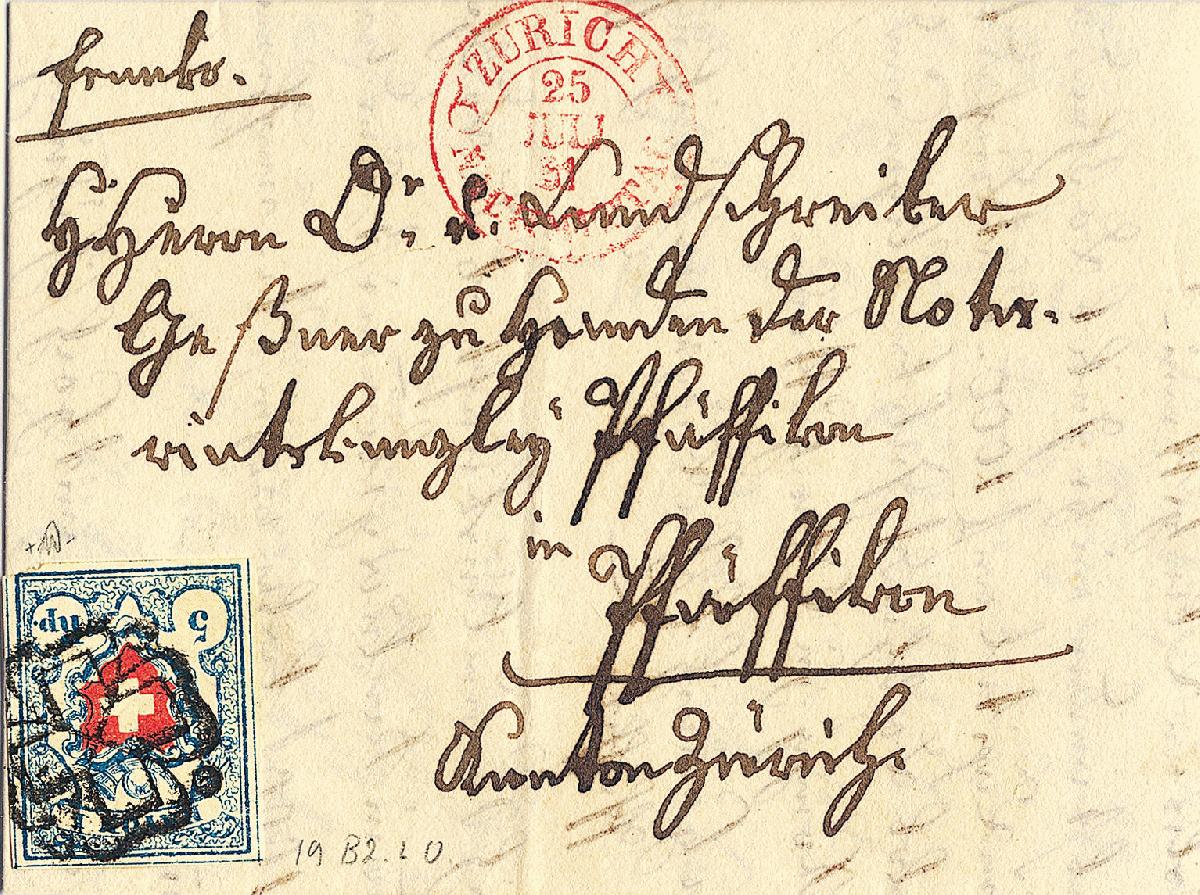 franko.
ZÜRICH
25
JULI
51
HHerrn Dr. u. Landschreiber
Geßner zu Handen der Notar-
iatskanzley Pfäffikon
in Pfäffikon
Kanton Zürich.
5 Rp.
19 B2. L O